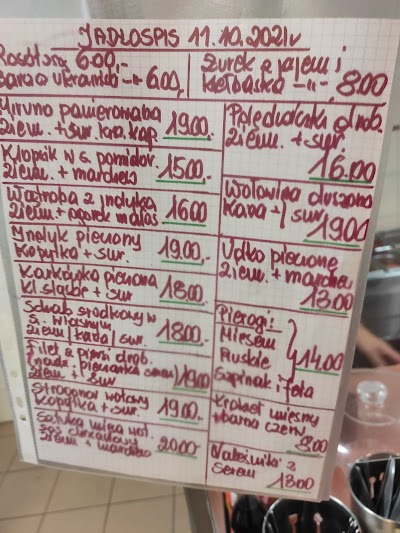 JADŁOSPIS 11.10.2021r
Rosół 6.00,-
Barszcz ukraiński -"- 6.00,-
Żurek z jajem i
kiełbaską -"- 8.00
Miruna panierowana
ziem. + sur. kis. kap. 19.00.-
Klopsik w s. pomidor.
ziem. + marchew 15.00.-
Wątroba z indyka
ziem. + ogórek małos 16.00
Indyk pieczony
kopytka + sur. 19.00.-
Karkówka pieczona
kl. śląskie + sur 18.00.-
Schab środkowy w
s. własnym
ziem / kasza / sur. 18.00.-
Filet z piersi drob.
(nadz. pieczarka ser)
ziem. + sur 19.00
Strogonow wołowy
kopytka + sur. 19.00.-
Sztuka mięsa woł.
sos chrzanowy
ziem + marchew 20.00.-
Polędwiczka drob.
ziem. + sur.
16.00
Wołowina duszona
kasza + sur
19.00
Udko pieczone
ziem. + marchew
13.00
Pierogi:
Mięsem
Ruskie
Szpinak i feta
14.00
Krokiet mięsny
+ barszcz czerw
8.00
Naleśniki z
serem 13.00